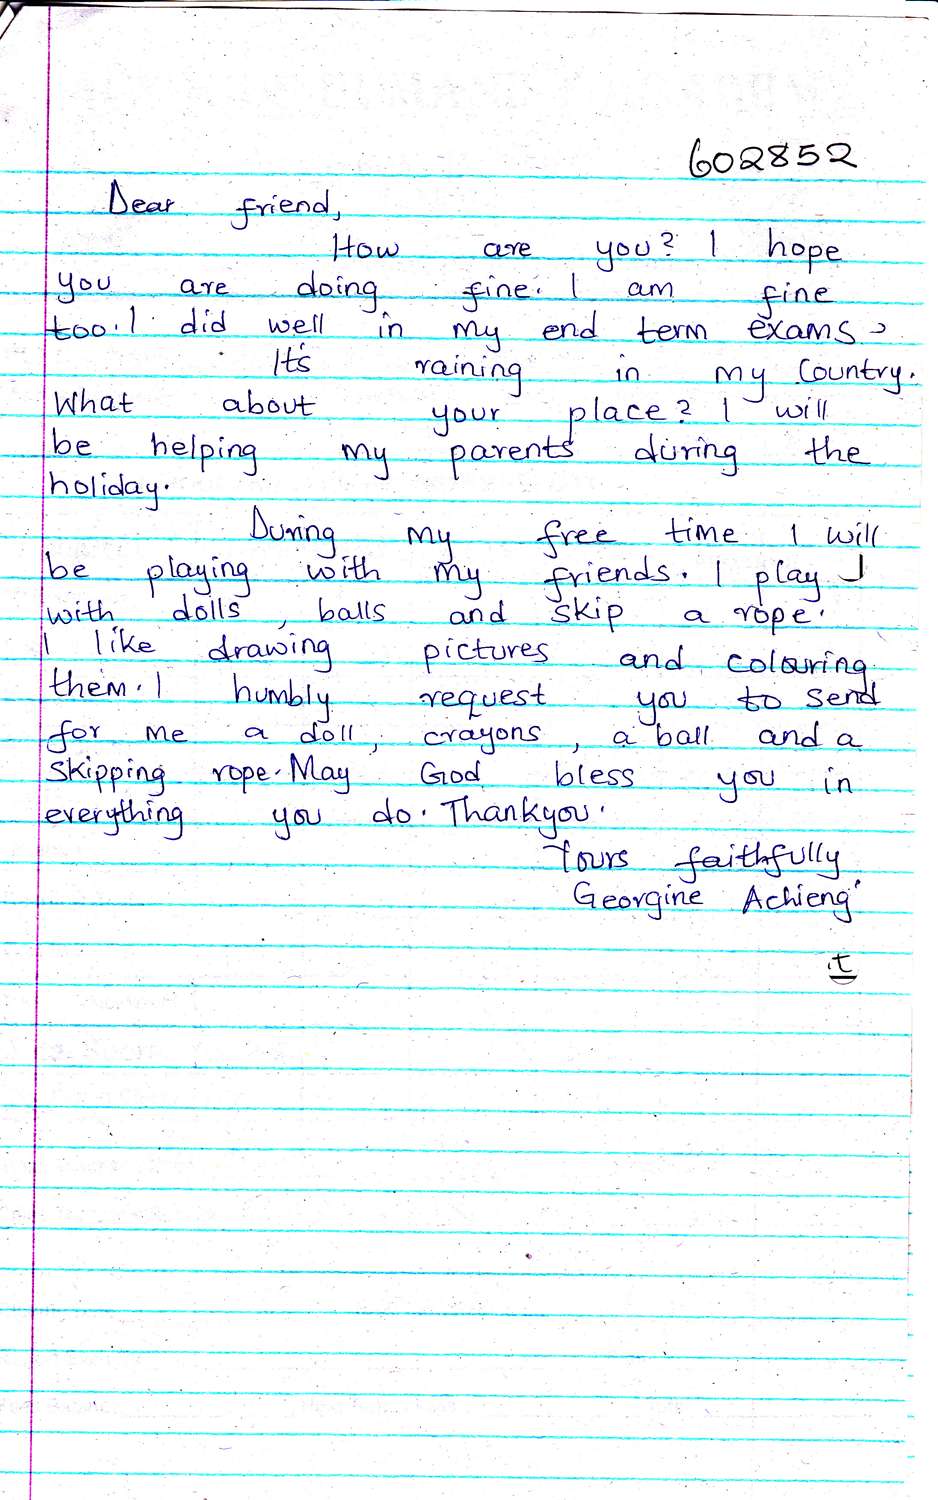 602852
Dear friend,
How are you? I hope
you are doing fine. I am fine
too. I did well in my end term exams.
It's raining in my Country.
What about your place? I will
be helping my parents during the
holiday.
During my free time I will
be playing with my friends. I play
with dolls, balls and skip a rope.
I like drawing pictures and colouring
them. I humbly request you to send
for me a doll, crayons, a ball and a
Skipping rope. May God bless you in
everything you do. Thankyou.
Yours faithfully
Georgine Achieng'
t